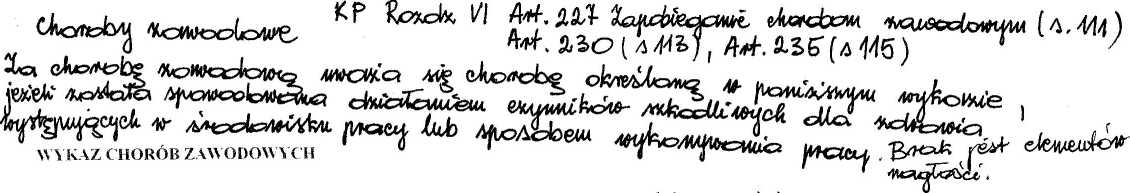 Choroby zawodowe KP Rozdz. VI Art. 227 Zapobieganie chorobom zawodowym (s. 111)
Art. 230 (s 113), Art. 235 (s 115)
Za chorobę zawodową uważa się chorobę określoną w poniższym wykazie,
jeżeli została spowodowana działaniem czynników szkodliwych dla zdrowia
występujących w środowisku pracy lub sposobem wykonywania pracy. Brak jest elementów
nagłości.
WYKAZ CHORÓB ZAWODOWYCH